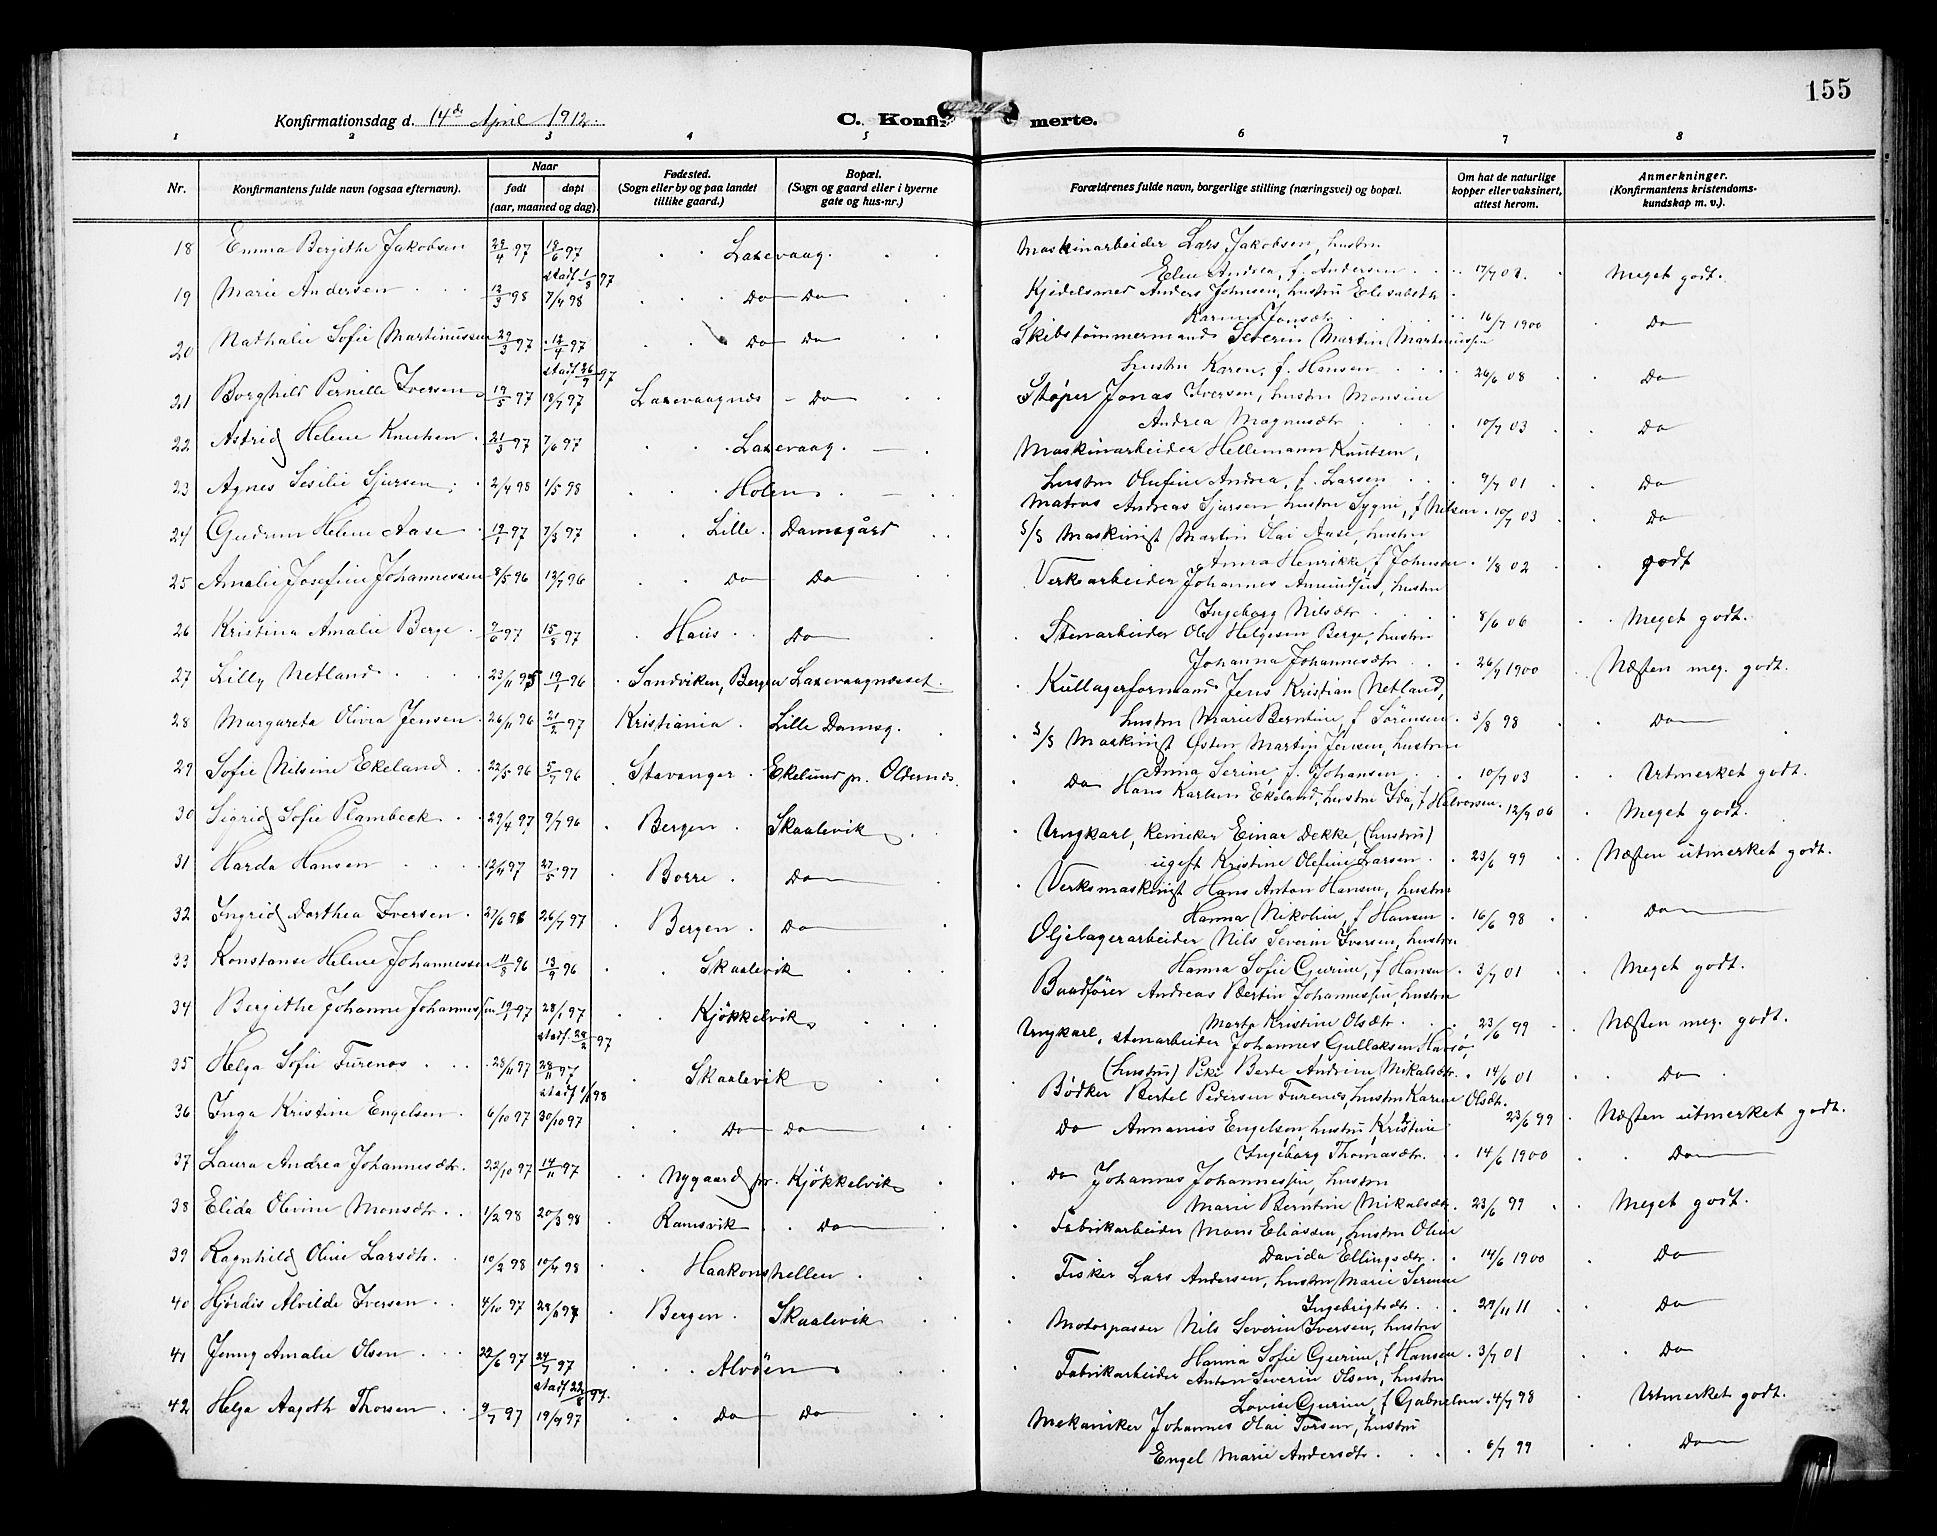 155
Konfirmationsdag d. 14de April 1912.
C. Konfirmerte.
1 2 3 4 5 6 7 8
Nr. Konfirmantens fulde navn (ogsaa efternavn). Naar født døpt (aar, maaned og dag). Fødested. (Sogn eller by og paa landet tillike gaard.) Bopæl. (Sogn og gaard eller i byerne gate og hus-nr.) Forældrenes fulde navn, borgerlige stilling (næringsvei) og bopæl. Om hat de naturlige kopper eller vaksinert, attest herom. Anmerkninger. (Konfirmantens kristendomskundskap m. v.).
18 Emma Bergithe Jakobsen 97 18/6 97 Laxevaag. Maskinarbeider Lars Jakobsen, hustru
stadf. 1/8 97 Eline Andrea, f. Andersen 17/7 02. Meget godt.
19 Marie Andersen 12/3 98 7/4 98 Do Do Kjedelsmed Anders Johnsen, hustru Elisabeth
Karine Jonsdtr. 16/7 1900 Do
20 Nathalie Sofie Martinussen 29/3 97 12/4 97 Do Do Skibstømmermand Severin Martin Martinussen
stadf. 26/9 97 hustru Karen, f. Hansen 26/6 08 Do
21 Borghild Pernille Iversen 19/5 97 18/7 97 Laxevaagnes Do Støper Jonas Iversen, hustru Monsine
Andrea Magnusdtr. 10/7 03 Do
22 Astrid Helene Knutsen 21/3 97 7/6 97 Laxevaag. Maskinarbeider Hellemann Knutsen,
hustru Olufine Andrea, f. Larsen 9/7 01 Do
23 Agnes Sesilie Sjursen 2/4 98 1/5 98 Holen Matros Andreas Sjursen, hustru Sygni, f. Nilsen 10/7 03 Do
24 Gudrun Helene Aase 19/1 97 7/3 97 Lille Damsgård S/S Maskinist Martin Olai Aase, hustru
Anna Henrikke, f. Johnsen 1/8 02 godt
25 Amalie Josefine Johannessen 8/5 96 12/7 96 Do Do Verksarbeider Johannes Amundsen, hustru
Ingeborg Nilsdtr. 8/6 06 Meget godt.
26 Kristina Amalie Berge 97 15/8 97 Haus Do Stenarbeider Ole Helgesen Berge, hustru
Johanna Johannesdtr. 26/7 1900 Næsten meg. godt.
27 Lilly Netland 23/11 95 19/1 96 Sandviken, Bergen Laxevaagneset. Kullagerformand Jens Kristian Netland,
hustru Marie Berntine, f. Sörensen 3/8 98 Do
28 Margareta Olivia Jensen 26/11 96 21/2 97 Kristiania Lille Damsg. S/S Maskinist Østen Martin Jensen, hustru
Anna Serine, f. Johansen 10/7 03 Utmerket godt.
29 Sofie Nilsine Ekeland 22/5 96 5/7 96 Stavanger Ekelund pr. Oldernes. Do Hans Karlsen Ekeland, hustru Ida, f. Halvorsen 12/7 06 Meget godt.
30 Sigrid Sofie Plambeck 29/4 97 9/7 96 Bergen Skaalevik Ungkarl, kemiker Einar Dekke, (hustru)
ugift Kristine Olefine Larsen 23/6 99 Næsten utmerket godt.
31 Harda Hansen 12/4 97 27/5 97 Borre Do Verksmaskinist Hans Anton Hansen, hustru
Hanna Nikoline, f. Hansen 16/6 98 Do
32 Ingrid Dorthea Iversen 27/6 96 26/7 97 Bergen Do Oljelagerarbeider Nils Severin Iversen, hustru
Hanna Sofie Gurine, f. Hansen 3/7 01 Meget godt.
33 Konstanse Helene Johannessen 11/8 96 13/9 96 Skaalevik Baadfører Andreas Bertin Johannessen, hustru
Marta Kristine Olsdtr. 23/6 99 Næsten meg. godt.
34 Bergithe Johanne Johannessen 19/1 97 28/1 97 Kjökkelvik Ungkarl, stenarbeider Johannes Gullaksen
stadf. 28/2 97 (hustru) Pike Berte Andrine Mikalsdtr. 14/6 01 Do
35 Helga Sofie Furenes 23/11 97 28/11 97 Skaalevik Bödker Bertel Pedersen Furenes, hustru Karine Olsdtr.
stadf 1/1 98 23/6 99 Næsten utmerket godt.
36 Inga Kristine Engelsen 6/10 97 30/10 97 Do Do Do Annanias Engelsen, hustru Kristine
Ingeborg Thomasdtr. 14/6 1900 Do
37 Laura Andrea Johannesdtr. 22/10 97 14/11 97 Nygaard pr. Kjökkelvik Do Johannes Johannessen, hustru
Marie Berntine Mikalsdtr. 23/6 99 Meget godt.
38 Elida Olivine Monsdtr. 1/2 98 20/3 98 Ramsvik Do Fabrikarbeider Mons Eliassen, hustru Oline
Davida Ellingsdtr. 14/6 1900 Do
39 Ragnhild Oline Larsdtr. 10/2 98 10/4 98 Haakonshellen Fisker Lars Andersen, hustru Marie Serine
Ingebrigtsdtr. 29/11 11 Do
40 Hjördis Alvilde Iversen 4/10 97 97 Bergen Skaalevik Motorpasser Nils Severin Iversen, hustru
Hanna Sofie Gurine, f. Hansen 3/7 01 Do
41 Jenny Amalie Olsen 22/6 97 24/7 97 Alvöen Fabrikarbeider Anton Severin Olsen, hustru
stadf. 22/8 97. Lovise Gurine, f. Gabrielsen 4/7 98 Utmerket godt.
42 Helga Aagoth Thorsen 9/7 97 19/9 97 Do Do Mekaniker Johannes Olai Torsen, hustru
Engel Marie Andersdtr. 6/7 99 Do